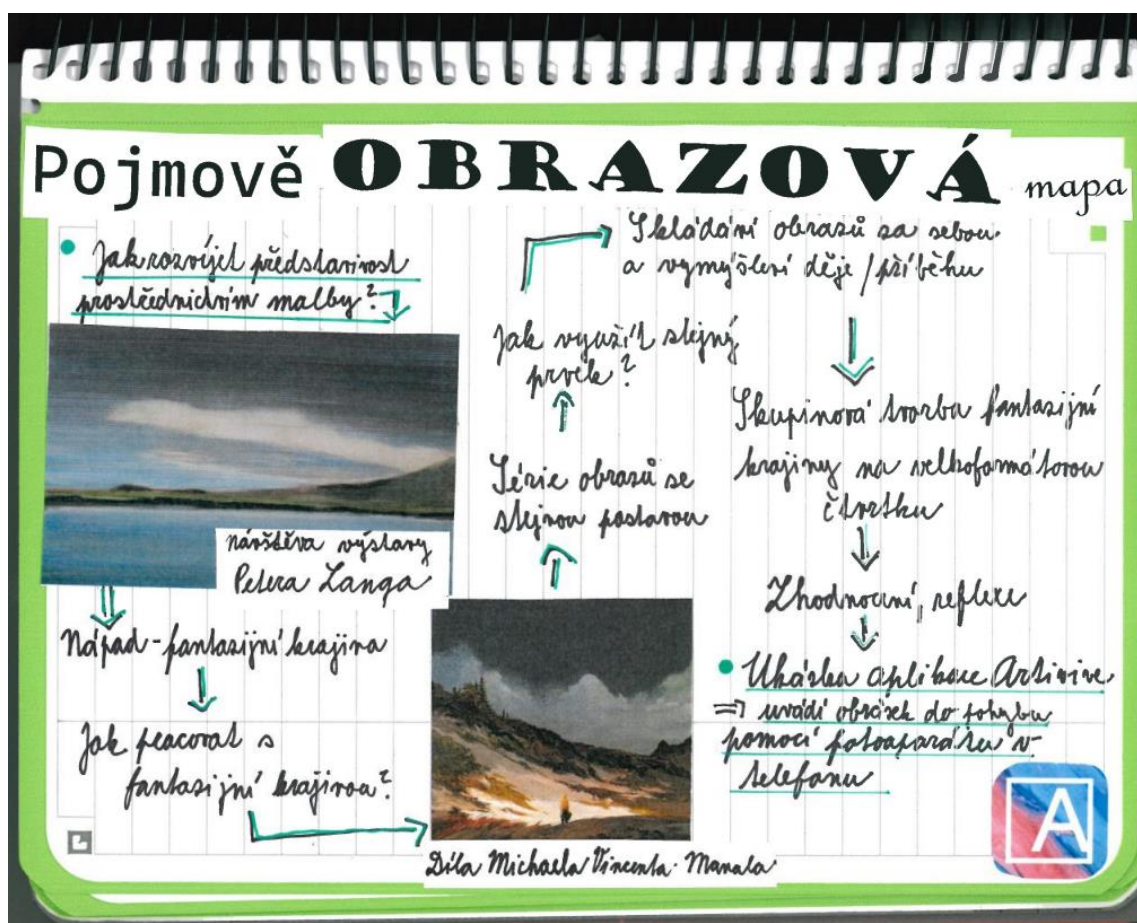 Pojmově OBRAZOVÁ mapa
Jak rozvíjet představivost
prostřednictvím malby?
návštěva výstavy
Petera Langa
Nápad - fantazijní krajina
Jak pracovat s
fantazijní krajinou?
Díla Michaela Vincenta Manala
Série obrazů se
stejnou postavou
Jak využít stejný
prvek?
Skládání obrazů za sebou
a vymýšlení děje / příběhu
Skupinová tvorba fantazijní
krajiny na velkoformátovou
čtvrtku
Zhodnocení, reflexe
Ukázka aplikace Artivive
=> uvádí obrázek do pohybu
pomocí fotoaparátu v
telefonu
A